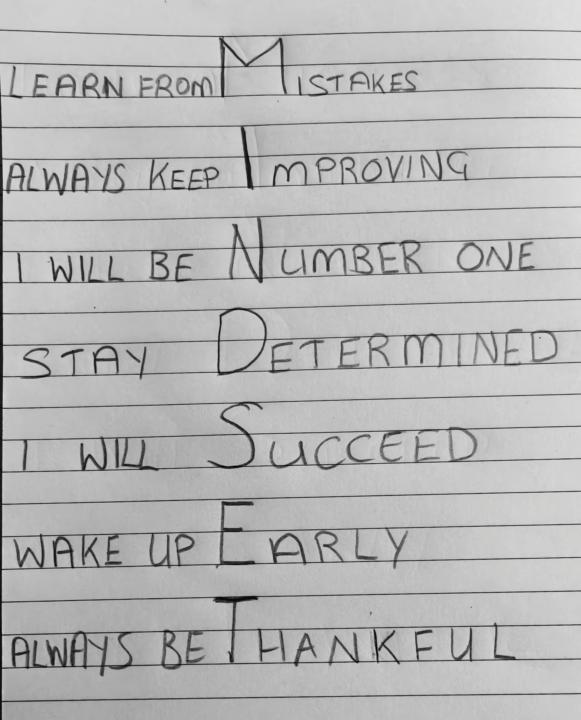 LEARN FROM MISTAKES
ALWAYS KEEP IMPROVING
I WILL BE NUMBER ONE
STAY DETERMINED
I WILL SUCCEED
WAKE UP EARLY
ALWAYS BE THANKFUL